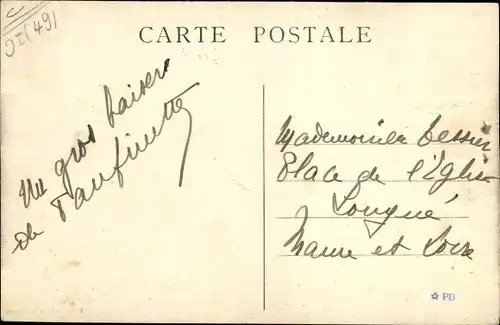 (49)
CARTE POSTALE
Un gros baiser
de Fanfinette
Mademoiselle Tessier
Place de l'Église
Longué
Maine et Loire
PD